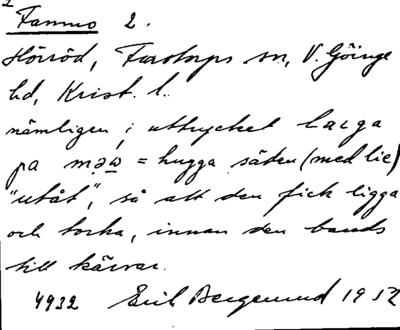 2
Famno 2.
Hörröd, Farstorps sn, V. Göinge
hd, Krist. l.
nämligen i uttrycket
pa = hugga säden (med lie)
"utåt", så att den fick ligga
och torka, innan den bands
till kärvar.
4932 Erik Bergemund 1932